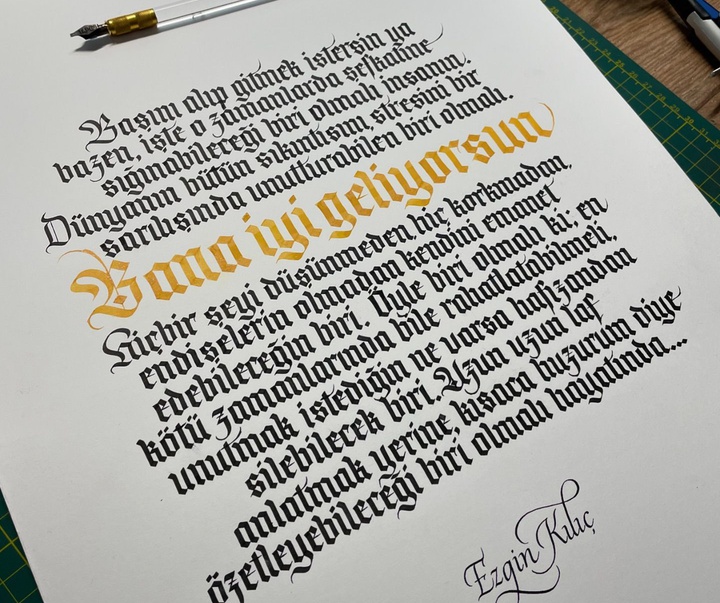 Başını alıp gitmek istersin ya
bazen, işte o zamanlarda şefkatine
sığınabileceği biri olmalı insanın.
Dünyanın bütün sıkıntısını stresini bir
sarılışında unutturabilen biri olmalı.
Bana iyi geliyorsun
Hiçbir şeyi düşünmeden, hiç korkmadan,
endişelerin olmadan kendini emanet
edebileceğin biri. Öyle biri olmalı ki; en
kötü zamanlarında bile rahatlatabilmeli,
unutmak istediğin ne varsa hafızandan
silebilecek biri. Uzun uzun laf
anlatmak yerine kısaca huzurum diye
özetleyebileceği biri olmalı hayatında...
Ezgin Kılıç